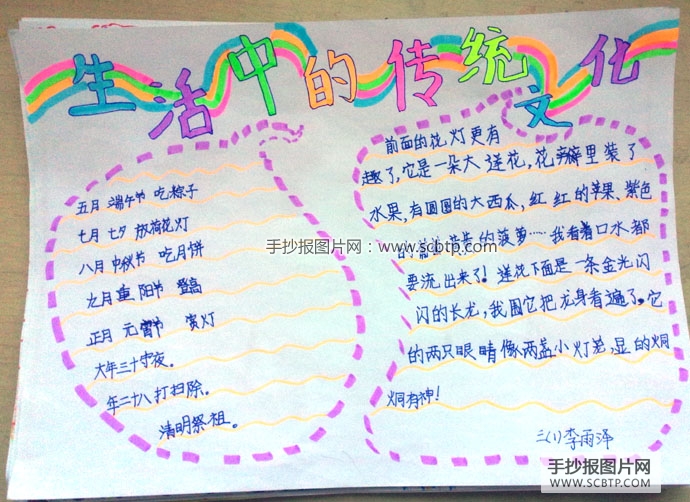 生活中的传统文化
五月 端午节 吃粽子
七月 七夕 放荷花灯
八月 中秋节 吃月饼
九月重阳节 登高
正月 元宵节 赏灯
大年三十守夜。
年二十八打扫除。
清明祭祖。
前面的花灯更有
趣了,它是一朵大莲花,花瓣里装了
水果,有圆圆的大西瓜,红红的苹果、紫色
的 的菠萝……我看着口水都
要流出来了!莲花下面是一条金光闪
闪的长龙,我围它把龙身看遍了。它
的两只眼睛像两盏小灯笼,显的炯
炯有神!
三(1)李雨泽
手抄报图片网:www.scbtp.com
手抄报图片网
SCBTP.COM